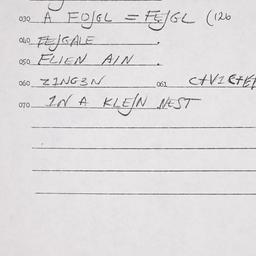 030 A FOJGL = FEJGL (126
040 FEJGALE .
050 FLIEN AIN .
060 ZINGEN 061
070 IN A KLEJN NEST